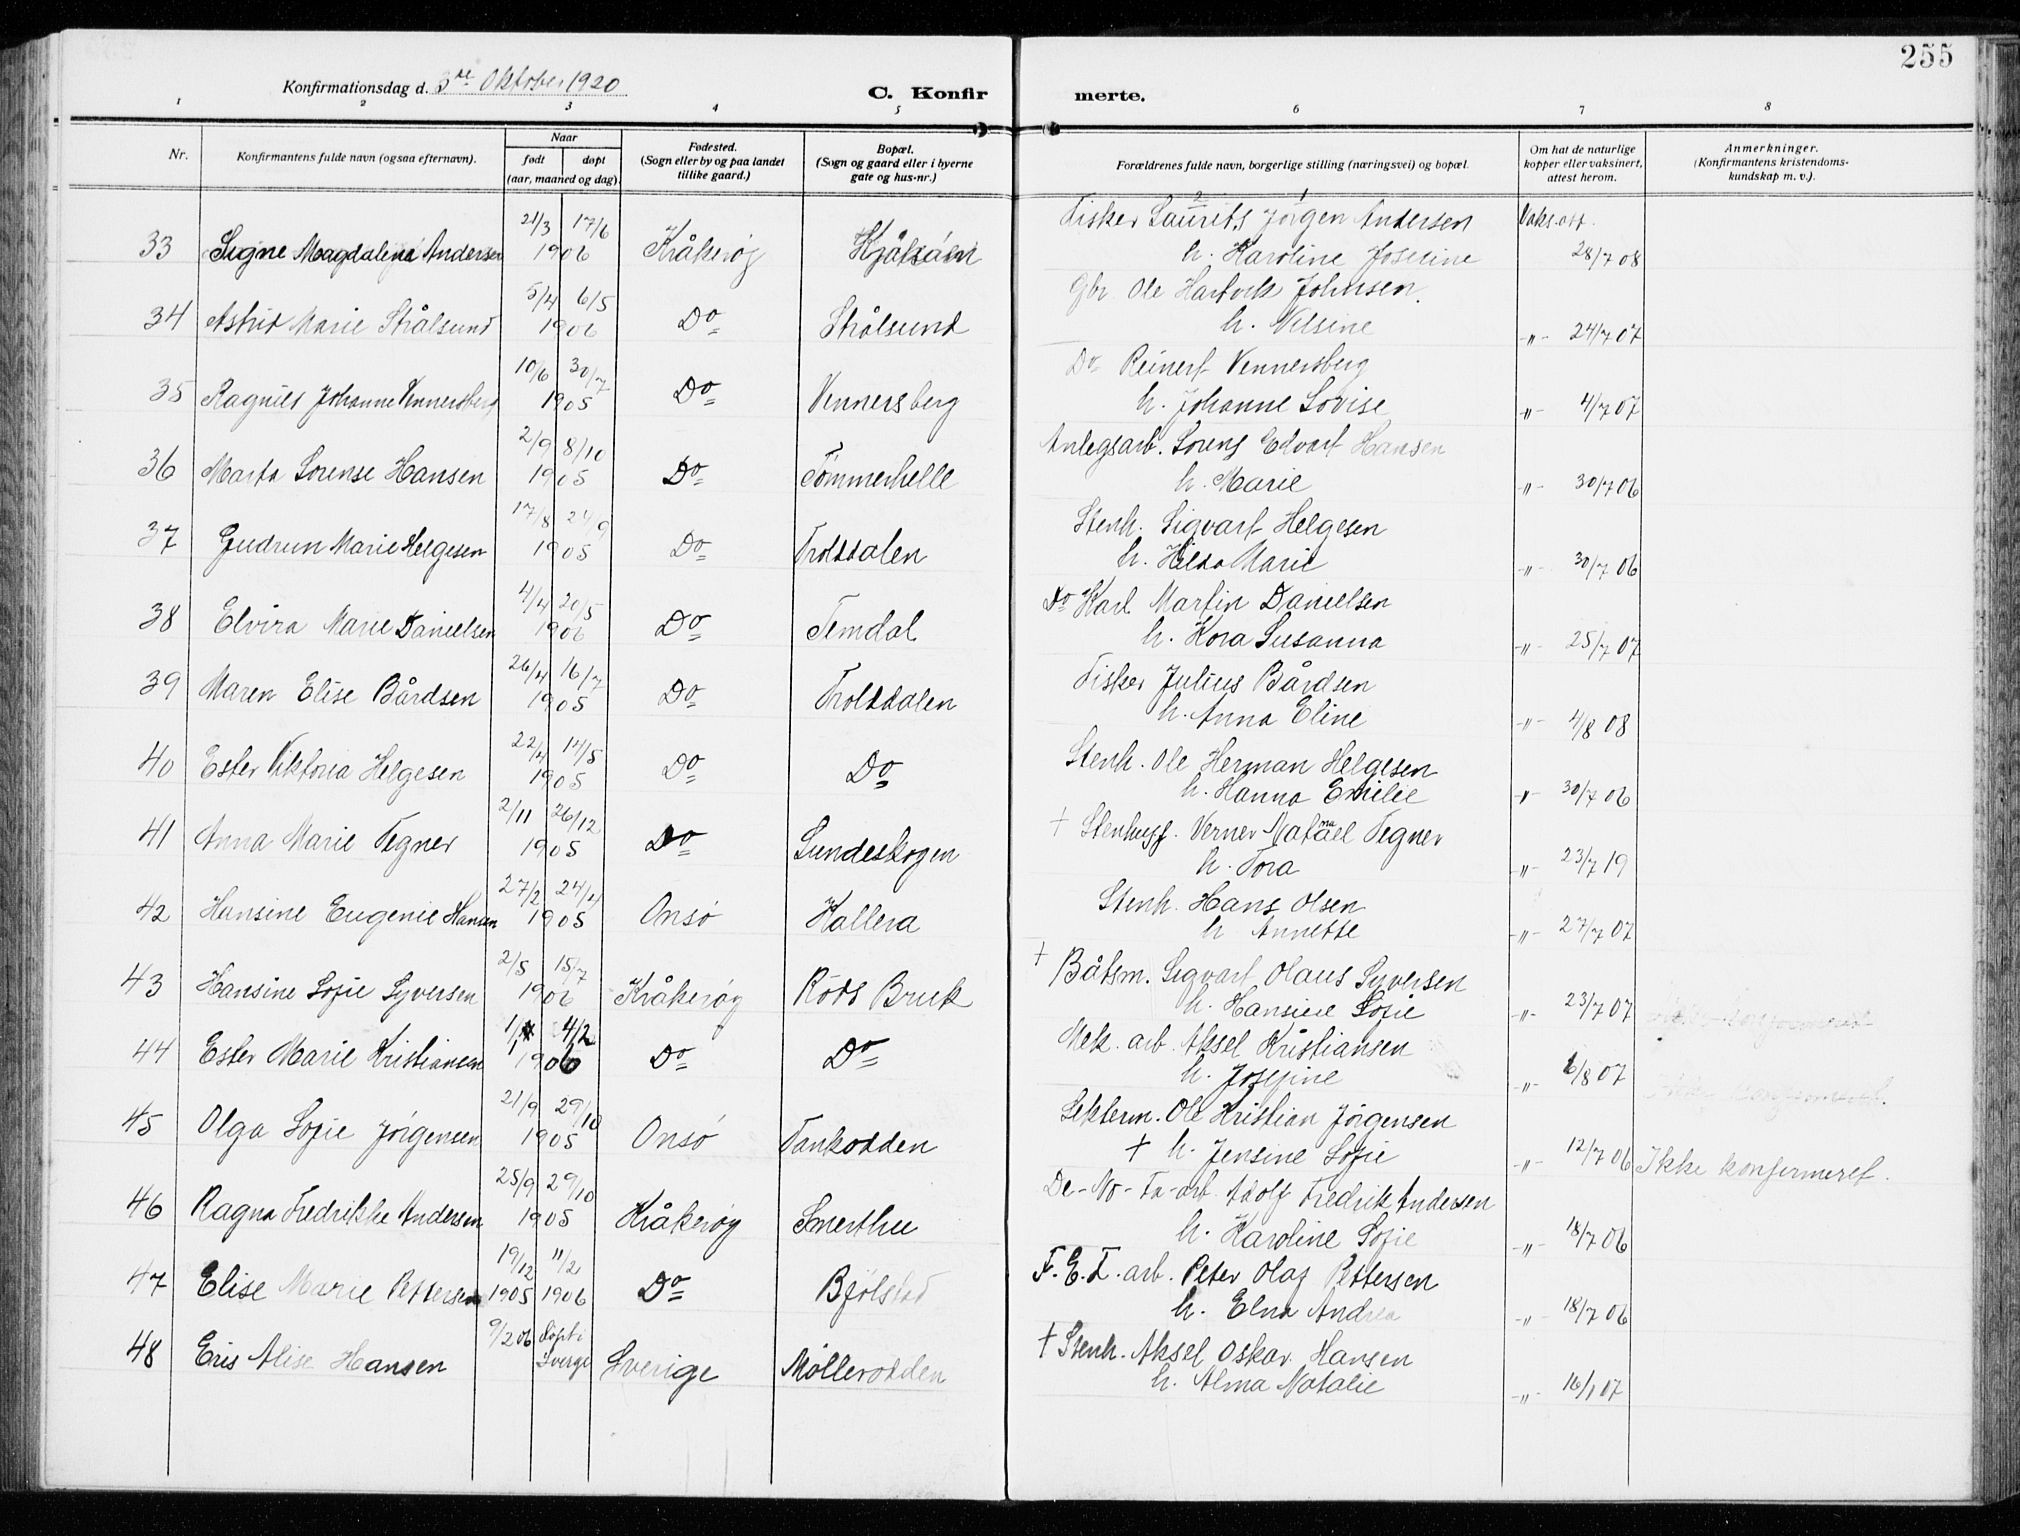 255
Konfirmationsdag d. 3de Oktober 1920
C. Konfirmerte.
1 2 3 4 5 6 7 8
Nr. Konfirmantens fulde navn (ogsaa efternavn). Naar født døpt (aar, maaned og dag). Fødested. (Sogn eller by og paa landet tillike gaard.) Bopæl. (Sogn og gaard eller i byerne gate og hus-nr.) Forældrenes fulde navn, borgerlige stilling (næringsvei) og bopæl. Om hat de naturlige kopper eller vaksinert, attest herom. Anmerkninger. (Konfirmantens kristendomskundskap m. v.).
2 1
21/3 17/6 Fisker Laurits Jörgen Andersen Vaks. att.
33 Signe Magdalena Andersen 1906 Kråkerøy h. Karoline Josefine 28/7 08
5/4 6/5 Gbr Ole Hartvik Johnsen.
34 Astrid Marie Strålsund 1906 Do Strålsund h. Nilsine -"- 24/7 07
10/6 30/7 Do Reinert Vennersberg
35 Johanne Vennersberg 1905 Do Vennersberg h. Johanne Lovise -"- 4/7 07
2/9 8/10 Anlegsarb. Sorens Edvart Hansen
36 Marta Sorense Hansen 1905 Do Tömmerhelle h. Marie -"- 30/7 06
17/8 24/9 Stenh. Sigvart Helgesen
37 Gudrun Marie Helgesen 1905 Do Trolddalen h. Hilda Marie -"- 30/7 06
4/4 20/5 Do Karl Martin Danielsen
38 Elvira Marie Danielsen 1906 Do Femdal h. Kora Susanna -"- 25/7 07
26/4 16/7 Fisker Julius Bårdsen
39 Maren Elise Bårdsen 1905 Do Trolddalen h. Anna Eline -"- 4/8 08
22/4 14/5 Stenh. Ole Herman Helgesen
40 Ester Viktoria Helgesen 1905 Do Do h. Hanna Emilie -"- 30/7 06
2/11 26/12 † Stenhugg. Verner Natanael Tegner
41 Anna Marie Tegner 1905 Do Sundeskogen h. Tora -"- 23/7 19
27/2 24/4 Stenh. Hans Olsen
42 Hansine Eugenie Hansen 1905 Onsö Kallera h Annette -"- 27/7 07
2/5 15/7 † Båtsm. Sigvart Olaus Syversen
43 Hansine Sofie Syversen 1906 Kråkerøy Röds Bruk h. Hansine Sofie -"- 23/7 07
4/2 Mek. arb. Aksel Kristiansen
44 Ester Marie Kristiansen 1906 Do Do h. Josefine -"- 6/8 07
21/9 29/10 Lekterm. Ole Kristian Jörgensen
45 Olga Sofie Jörgensen 1905 Onsö Tankodden † h. Jensine Sofie -"- 12/7 06 Ikke konfirmeret.
25/9 29/10 De-No-Fa-arb. Adolf Fredrik Andersen
46 Ragna Fredrikke Andersen 1905 Kråkerøy Smerthu h. Karoline Sofie -"- 18/7 06
19/12 11/2 F. E. F. arb. Peter Olaf Pettersen
47 Elise Marie Pettersen 1905 1906 Do Bjölstad h. Elna Andrea -"- 18/7 06
9/2 06 Döpt i Sverge † Stenh. Aksel Oskar Hansen
48 Eris Alise Hansen Sverige Möllerodden h. Alma Natalie -"- 16/1 07